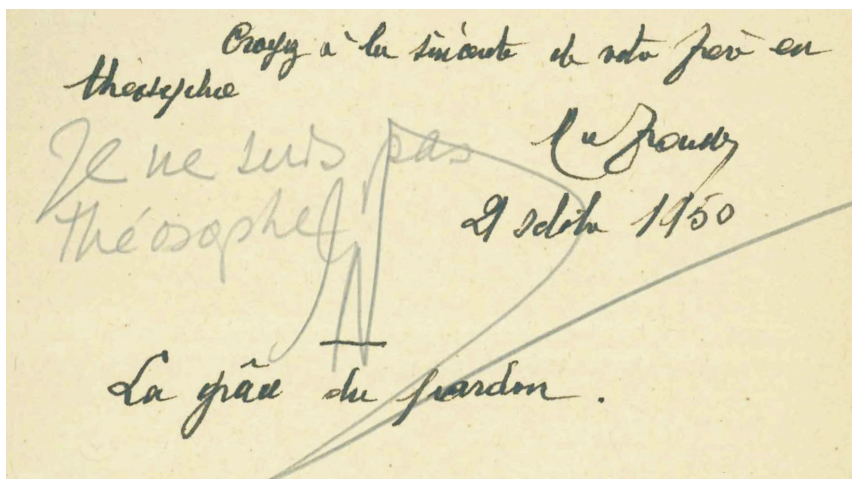 Croyez à la sincérité de votre frère en
théosophie
Je ne suis pas
théosophe
21 1950
La grâce du pardon.